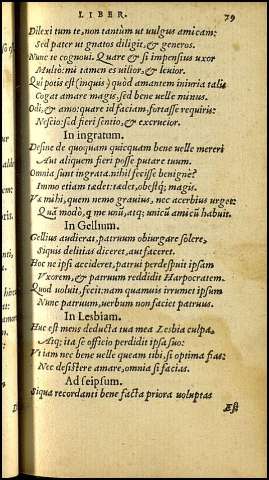 LIBER. 79
Dilexi tum te, non tantum ut uulgus amicam:
Sed pater ut gnatos diligit, & generos.
Nunc te cognoui. Quare & si impensius uxor
Multo: mi tamen es uilior, & leuior.
Qui potis est (inquis) quòd amantem iniuria talis
Cogat amare magis, sed bene uelle minus.
Odi, & amo: quare id faciam, fortasse requiris:
Nescio: sed fieri sentio, & excrucior.
In ingratum.
Desine de quoquam quicquam bene uelle mereri
Aut aliquem fieri posse putare tuum.
Omnia sunt ingrata. nihil fecisse benigne?
Immo etiam tædet: tædet, obestq; magis.
Va mihi, quem nemo grauius, nec acerbius urget:
Quàm modò, q̃ me unũ, atq; unicũ amicũ habuit.
In Gellium.
Gellius audierat, patruum obiurgare solere,
Siquis delitias diceret, aut faceret.
Hoc ne ipsi accideret, patrui perdespuit ipsam
Vxorem, & patruum reddidit Harpocratem.
Quod uoluit, fecit: nam quamuis irrumet ipsum
Nunc patruum, uerbum non faciet patruus.
In Lesbiam.
Huc est mens deducta tua mea Lesbia culpa,
Atq; ita se officio perdidit ipsa suo:
Vt iam nec bene uelle queam tibi, si optima fias:
Nec desistere amare, omnia si facias.
Ad seipsum.
Siqua recordanti bene facta priora uoluptas
Æst